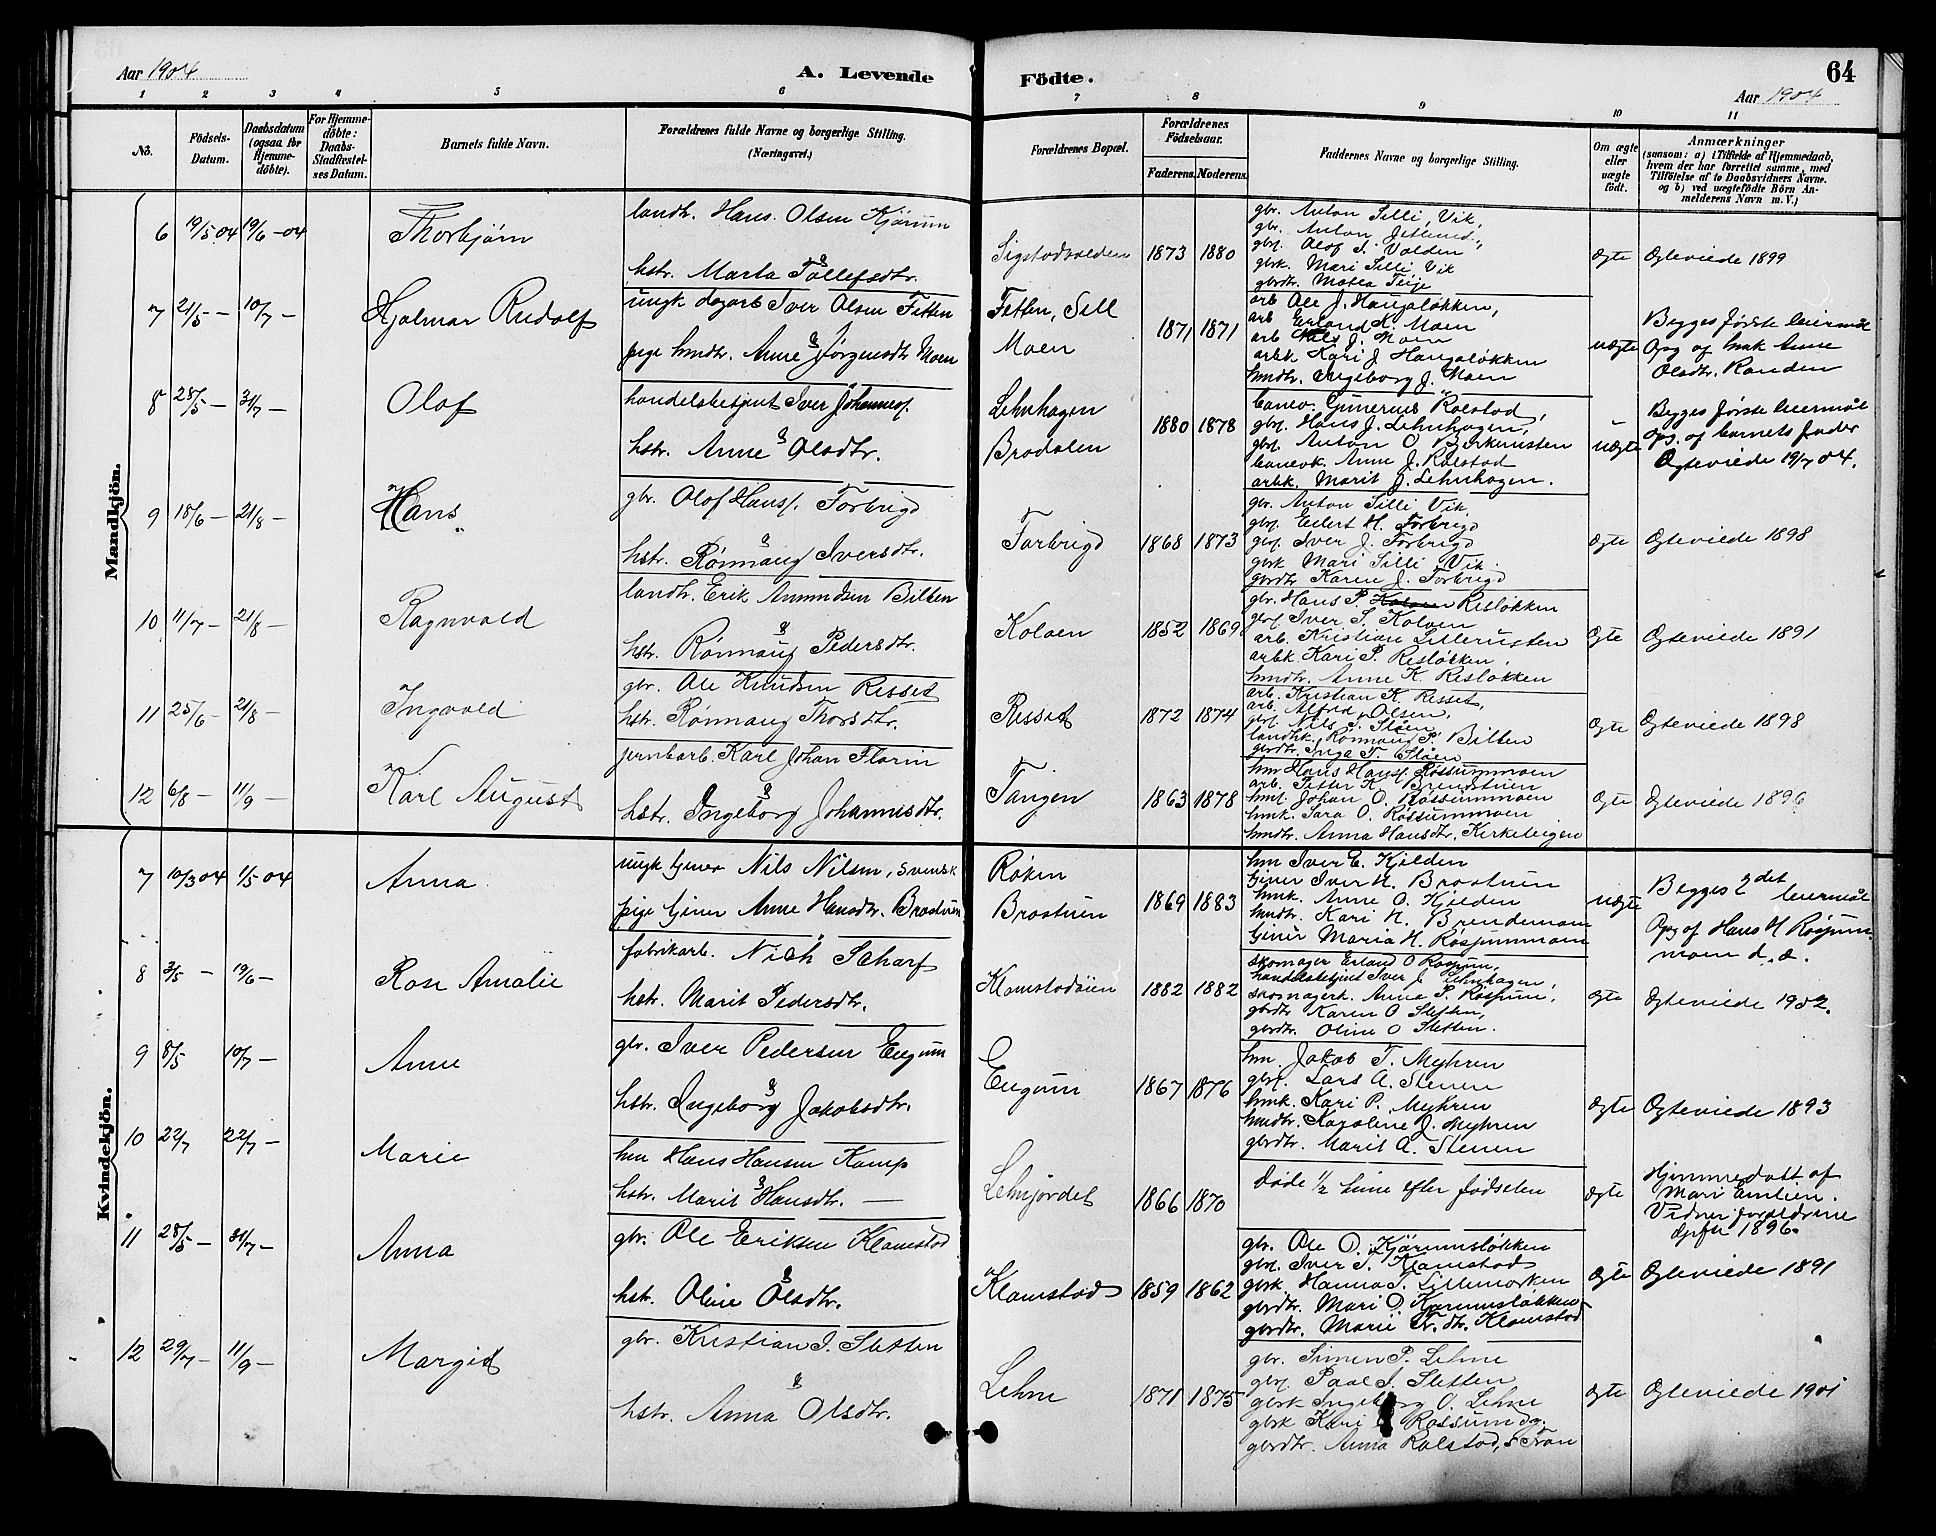 Aar 1904
A. Levende
Födte.
64
Aar 1904
1 2 3 4 5 6 7 8 9 10 11
No.
Födsels-Datum.
Daabsdatum (ogsaa for Hjemmedöbte).
For Hjemmedöbte: Daabs-Stadfæstelses Datum.
Barnets fulde Navn.
Forældrenes fulde Navne og borgerlige Stilling.
(Næringsvei.)
Forældrenes Bopæl.
Forældrenes Födselsaar.
Faderens. Moderens.
Faddernes Navne og borgerlige Stilling.
Om ægte eller uægte födt.
Anmærkninger
(saasom: a) i Tilfælde af Hjemmedaab,
hvem der har forrettet samme, med
Tilföielse af to Daabsvidners Navne.
og b) ved uægtefödte Börn Anmelderens Navn m. V.)
Mandkjön.
6 19/5 04 19/6 -04 Thorbjørn
landh. Hans Olsen Kjørum
&
hstr. Marta Tollefsdtr.
Sigstadvolden 1873 1880
gbr. Anton Silli, Vik,
gbr. Anton Jetlund,
gbrs. Olof I. Volden
gbrk. Mari Silli, Vik
gbrdtr. Matea Teige
Ægte Ægteviede 1899
7 21/5 — 10/7 — Hjalmar Rudolf
ungk dagarb Iver Olsen Fetten
&
pige hmdtr. Anne Jørgensdtr Moen
Fetten, Sell
Moen 1871 1871
arb Ole J. Haugaløkken,
arb Erland K. Moen
arb Nils J. Moen
arbk Kari J Haugaløkken
hmdtr. Ingeborg J. Moen
uægte
Begges første leiermål
Opg af Enk Anne
Olsdtr. Randen
8 28/5 — 31/7 — Olaf
handelsbetjent Iver Johannes.
&
hstr. Anne Olsdtr.
Lehnhagen
Brodalen 1880 1878
banev. Gunerius Rolstad,
gbrs. Hans J. Lehnhagen,
gbrs. Anton O. Bjørkerusten
banevk. Anne J. Rolstad
arbk. Marit J. Lehnhagen.
uægte
Begges første leiermål
Opg. af barnets fader
Ægteviede 19/7 04.
9 18/6 — 21/8 — Hans
gbr. Olof Hans. Forbrigd
&
hstr. Rønnaug Iversdtr.
Forbrigd 1868 1873
gbr. Anton Silli Vik.
gbrs. Eilert H. Forbrigd
gbrs. Iver J. Forbrigd
gbrk Mari Silli, Vik.
gbrdtr Karen J. Forbrigd
Ægte Ægteviede 1898
10 11/7 — 21/8 — Ragnvald
landh. Erik Amundsen Bilben
&
hstr. Rønnaug Pedersdtr.
Koloen 1852 1869
gbr. Hans P. Risløkken
gbrs. Iver S. Koloen
arb. Kristian Lillerusten
arbk Kari P. Risløkken.
hmdtr. Anne K. Risløkken
Ægte Ægteviede 1891
11 25/6 — 21/8 — Ingvald
gbr. Ole Knudsen Risset
hstr. Rønnaug Thorsdtr.
Risset 1872 1874
arb. Kristian K. Risset,
arb. Alfred Olsen,
gbrs. Nils T. Støen
landhk. Rønnaug P. Bilben
gbrdtr. Inga T. Støen
Ægte Ægteviede 1898
12 6/8 — 11/9 — Karl August
jernbarb. Karl Johan Florin
&
hstr. Ingeborg Johannisdtr.
Tangen 1863 1878
hm Hans Hans. Røssummoen
arb. Petter K. Brendstuen
hms. Johan O. Røssummoen
hmk. Sara O. Røssummoen
hmdtr. Anna Hansdtr. Kirkebigen
Ægte Ægteviede 1896
Kvindekjön.
7 10/3 04 1/5 04 Anna
ungk tjener Nils Nilsen, svensk
pige tjener Anne Hansdtr. Brostuen
Røken
Brostuen 1869 1883
hm Iver E. Kjelden
tjener Iver H. Brostuen
hmk. Anne O. Kjelden
hmdtr. Kari N. Brendemoen
tjener Maria H. Røssummoen
uægte
Begges 2det
leiermål
Opg af Hans H Røssummoen d.æ.
8 3/5 — 19/6 — Rosa Amalie
fabrikarb. Nich Scharf
&
hstr. Marit Pedersdtr.
Klomstadøien 1882 1882
skomager Erland O Rossum,
handelsbetjent Iver J. Lehnhagen,
skomagerk. Anna P. Røssum,
gbrdtr Karen O Sletten,
gbrdtr. Oline O Sletten.
Ægte Ægteviede 1902.
9 8/5 10/7 — Anne
gbr. Iver Pedersen Engum
&
hstr. Ingeborg Jakobsdtr.
Engum 1867 1876
hm Jakob T. Myhren
gbrs. Lars A. Stenen
hmk. Kari P. Myhren
hmdtr. Karoline J. Myhren
gbrdtr. Marit A. Stenen
Ægte Ægteviede 1893
10 22/7 22/7 — Marie
hm Hans Hansen Kamp
&
hstr. Marit Hansdtr. —
Lehnjordet 1866 1870
Døde 1/2 time efter fødselen
Ægte
Hjemmedøbt af
Mari Emlien.
Vidner forældrene
Ægtev 1896.
11 28/5 — 31/7 — Anna
gbr. Ole Eriksen Klomstad
&
hstr. Oline Olsdtr.
Klomstad 1859 1862
gbr. Ole O. Kjørumsløkken
gbrs. Iver T. Klomstad
gbrk. Hanna T. Lillemorken
gbrdtr. Mari O Kjørumsløkken
gbrdtr. Marie Tr. dtr. Klomstad
Ægte Ægteviede 1891
12 29/7 — 11/9 — Margit
gbr. Kristian I. Sletten
&
hstr. Anna Olsdtr.
Lehne 1871 1875
gbr. Simen P. Lehne
gbrs. Paal I. Sletten
gbrk Ingeborg O. Lehne
gbrk Kari O Røssum
gbrdtr. Anna Rolstad, S Fron
Ægte Ægteviede 1901